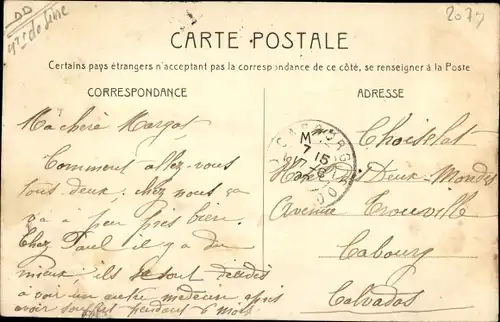 DD
2077
CARTE POSTALE
Certains pays étrangers n'acceptent pas la correspondance de ce côté, se renseigner à la Poste
CORRESPONDANCE
ADRESSE
Ma chère Margot
Comment allez-vous
tous deux, chez nous ça
va à peu près bien.
Chez Paul il y a du
mieux, ils se sont décidés
à voir un autre médecin après
avoir souffert pendant 6 mois
CABOURG
7 15
Mme Choiselat
Deux-Mondes
Avenue Trouville
Cabourg
Calvados